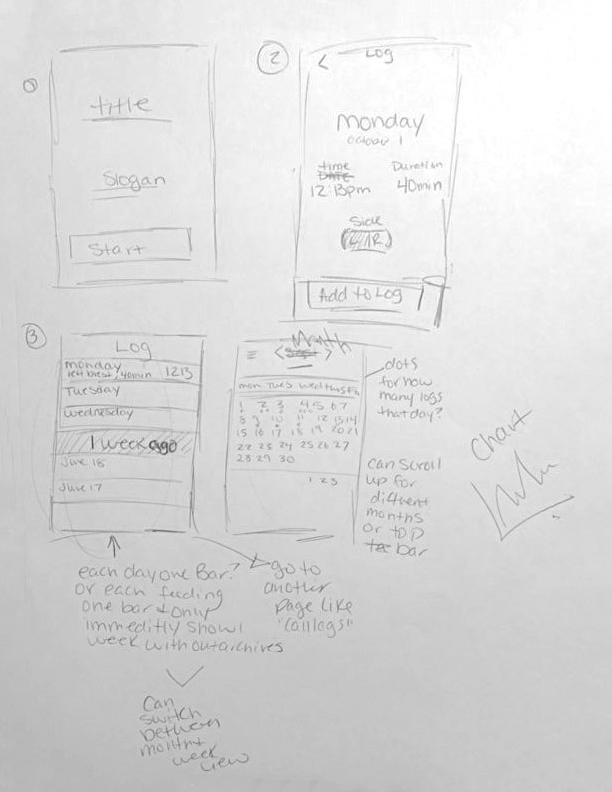 1
title
Slogan
Start
2
< Log
monday
october 1
time
DATE
12:13pm
Duration
40min
Side
L/R
Add to Log
3
Log
monday
left brest, 40min 1213
Tuesday
wednesday
1 week ago
June 18
June 17
Month
< >
mon Tues wed thurs Fri
1 2 3 4 5 6 7
8 9 10 11 12 13 14
15 16 17 18 19 20 21
22 23 24 25 26 27
28 29 30
1 2 3
dots
for how
many logs
that day?
can scroll
up for
different
months
or top
bar
Chart
each day one Bar?
or each feeding
one bar + only
immeditly show 1
week without archives
go to
another
page like
"call logs"
Can
switch
between
month +
week
view